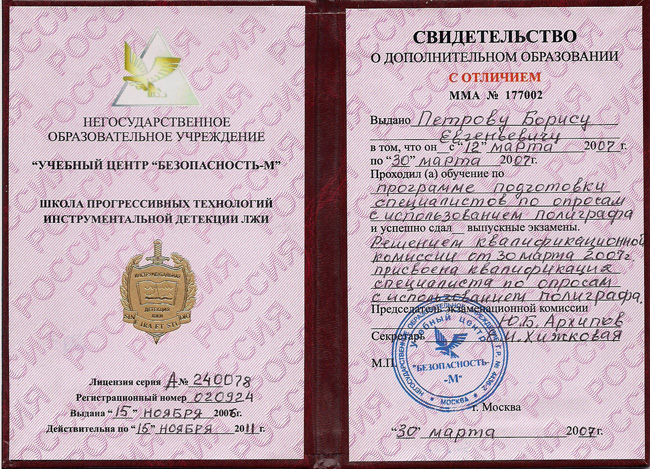 НЕГОСУДАРСТВЕННОЕ
ОБРАЗОВАТЕЛЬНОЕ УЧРЕЖДЕНИЕ
“УЧЕБНЫЙ ЦЕНТР “БЕЗОПАСНОСТЬ-М”
ШКОЛА ПРОГРЕССИВНЫХ ТЕХНОЛОГИЙ
ИНСТРУМЕНТАЛЬНОЙ ДЕТЕКЦИИ ЛЖИ
ИНСТРУМЕНТАЛЬНАЯ
ДЕТЕКЦИЯ
ЛЖИ
Лицензия серия А № 240078
Регистрационный номер 020924
Выдана “15” НОЯБРЯ 2006г.
Действительна по “15” НОЯБРЯ 2011г.
СВИДЕТЕЛЬСТВО
О ДОПОЛНИТЕЛЬНОМ ОБРАЗОВАНИИ
С ОТЛИЧИЕМ
ММА № 177002
Выдано Петрову Борису
Евгеньевичу
в том, что он с “12” марта 2007г.
по “30” марта 2007г.
Проходил (а) обучение по
программе подготовки
специалистов по опросам
с использованием полиграфа
и успешно сдал выпускные экзамены.
Решением квалификационной
комиссии от 30 марта 2007г.
присвоена квалификация
специалиста по опросам
с использованием полиграфа.
Председатель экзаменационной комиссии
Ю.Б. Архипов
Секретарь И. Хижковая
М.П.
учебный центр
“БЕЗОПАСНОСТЬ-
-М”
МОСКВА
г. Москва
“30” марта 2007г.